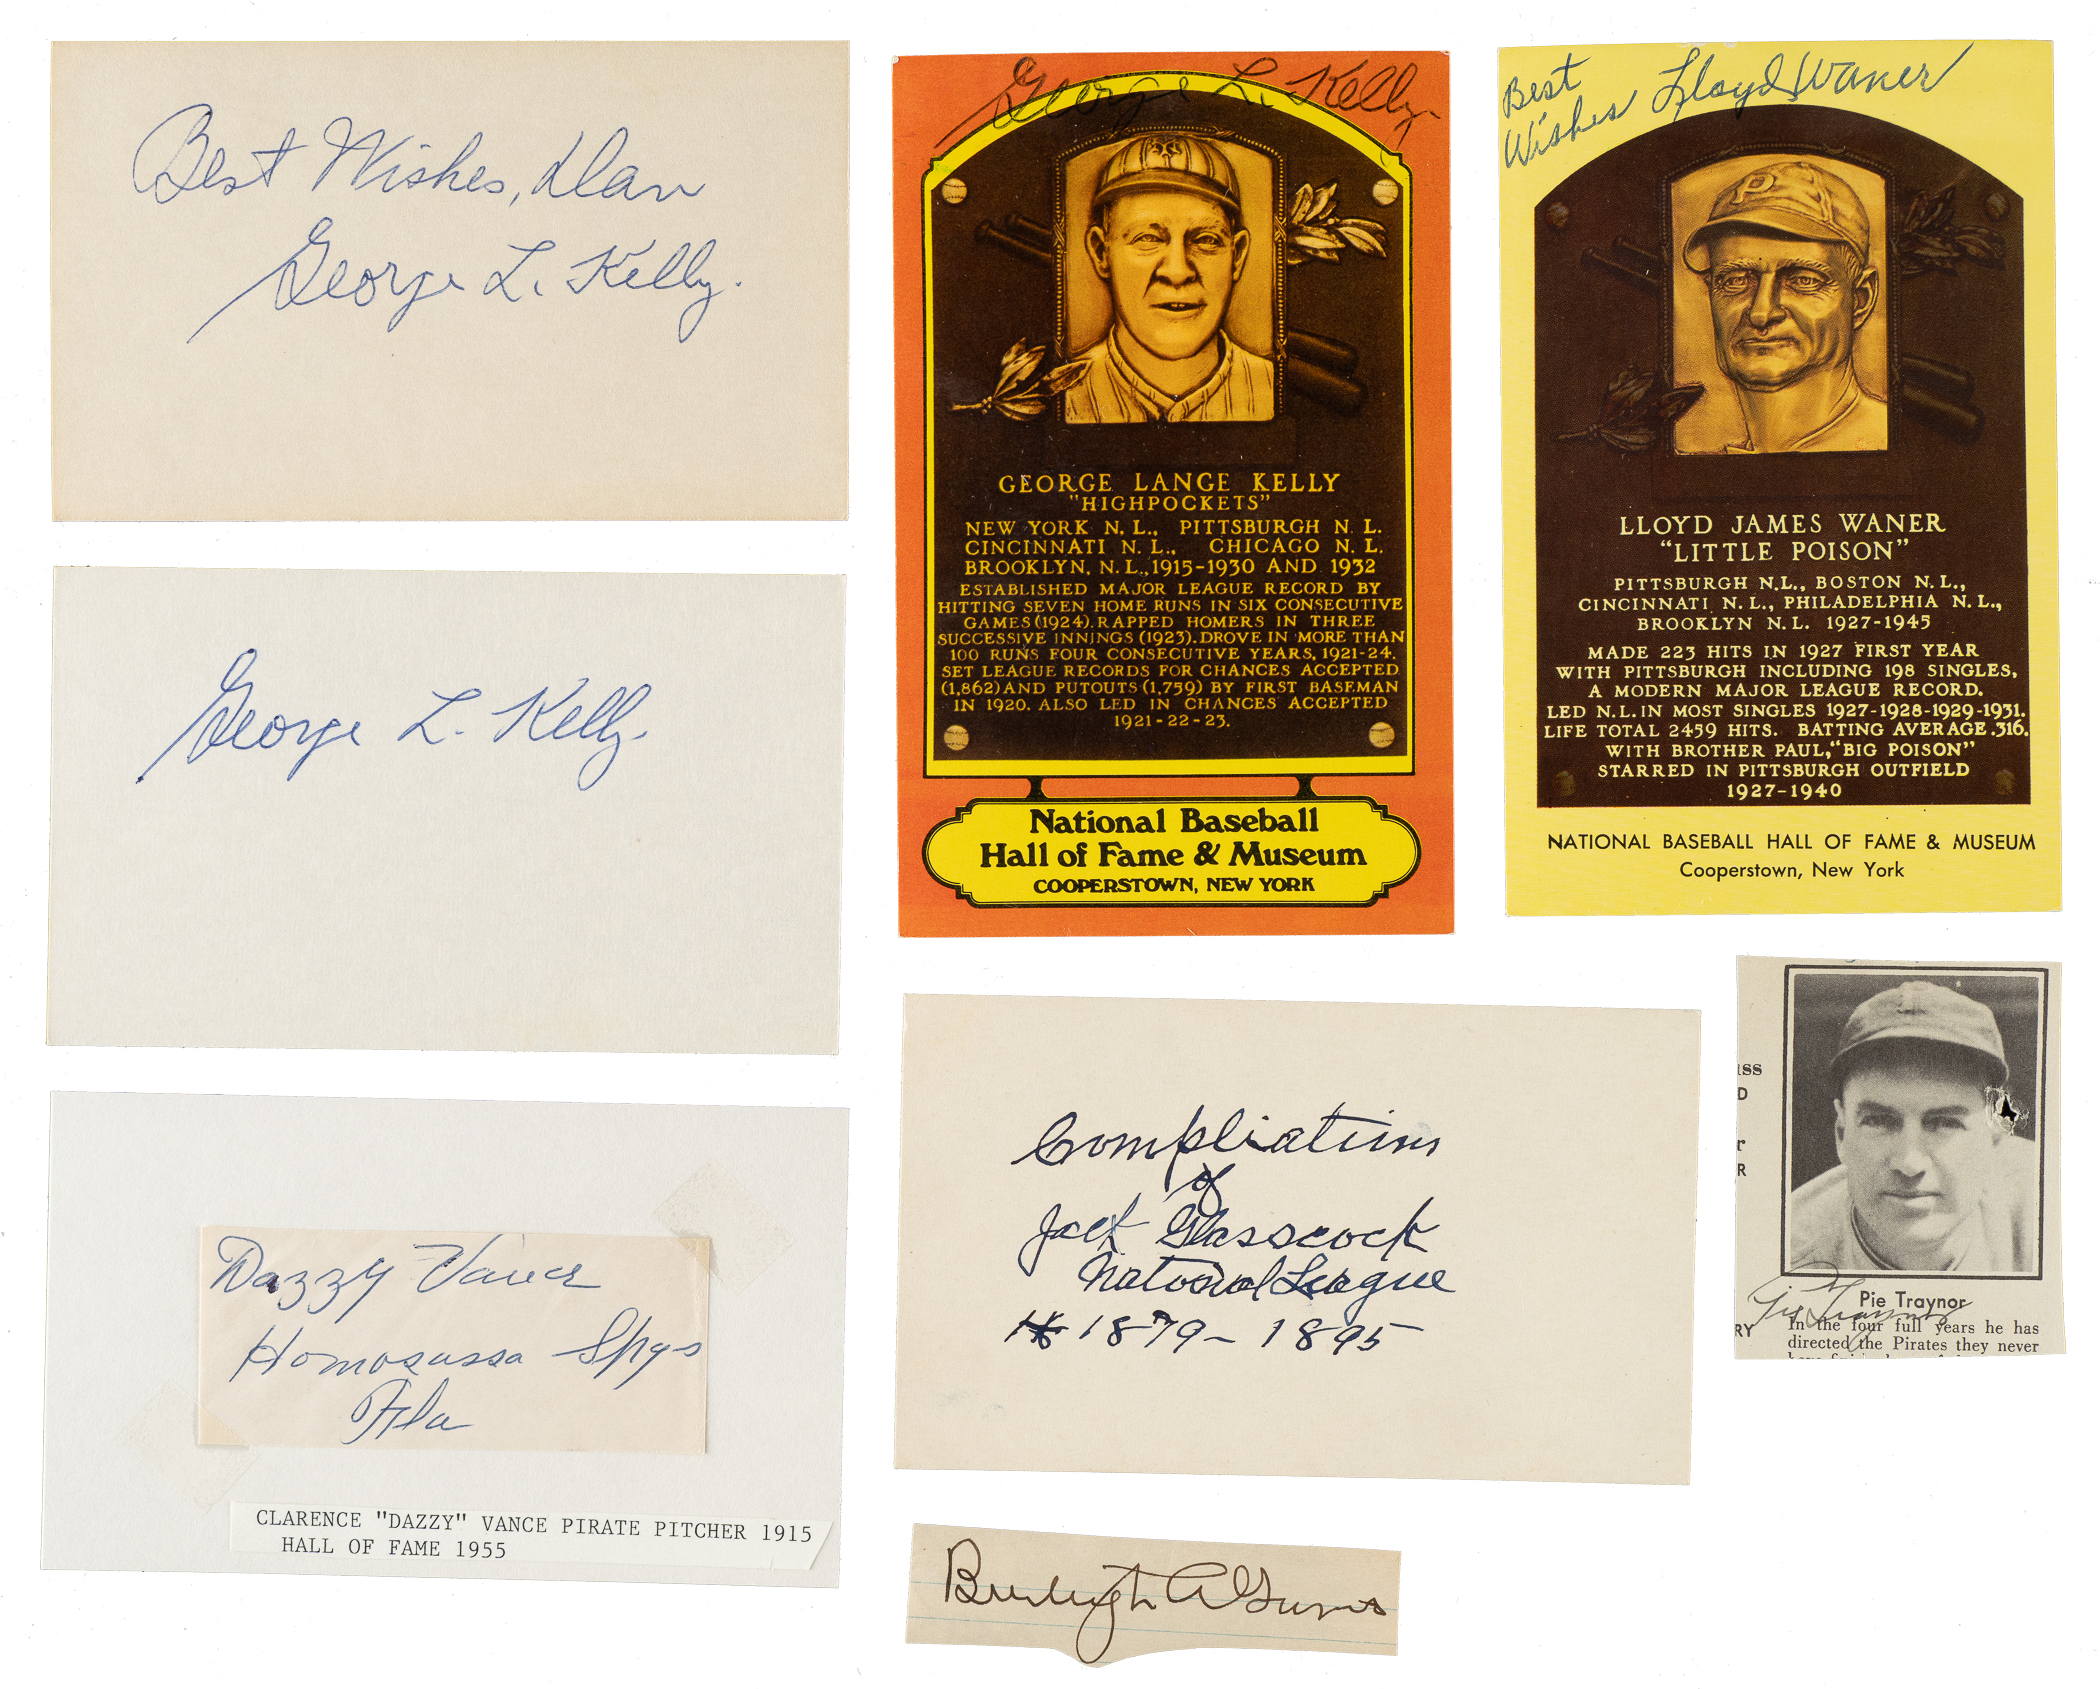 Best Wishes, Dan
George L. Kelly.
George L. Kelly.
Dazzy Vance
Homosassa Spgs
Fla
CLARENCE "DAZZY" VANCE PIRATE PITCHER 1915
HALL OF FAME 1955
George L. Kelly.
GEORGE LANGE KELLY
"HIGHPOCKETS"
NEW YORK N. L., PITTSBURGH N. L.
CINCINNATI N. L., CHICAGO N. L.
BROOKLYN, N. L., 1915-1930 AND 1932
ESTABLISHED MAJOR LEAGUE RECORD BY
HITTING SEVEN HOME RUNS IN SIX CONSECUTIVE
GAMES (1924). RAPPED HOMERS IN THREE
SUCCESSIVE INNINGS (1923). DROVE IN MORE THAN
100 RUNS FOUR CONSECUTIVE YEARS, 1921-24.
SET LEAGUE RECORDS FOR CHANCES ACCEPTED
(1,862) AND PUTOUTS (1,759) BY FIRST BASEMAN
IN 1920. ALSO LED IN CHANCES ACCEPTED
1921-22-23.
National Baseball
Hall of Fame & Museum
COOPERSTOWN, NEW YORK
Best
Wishes Lloyd Waner
P
LLOYD JAMES WANER
"LITTLE POISON"
PITTSBURGH N.L., BOSTON N. L.,
CINCINNATI N. L., PHILADELPHIA N. L.,
BROOKLYN N. L. 1927-1945
MADE 223 HITS IN 1927 FIRST YEAR
WITH PITTSBURGH INCLUDING 198 SINGLES,
A MODERN MAJOR LEAGUE RECORD.
LED N.L. IN MOST SINGLES 1927-1928-1929-1931.
LIFE TOTAL 2459 HITS. BATTING AVERAGE .316.
WITH BROTHER PAUL, "BIG POISON"
STARRED IN PITTSBURGH OUTFIELD
1927-1940
NATIONAL BASEBALL HALL OF FAME & MUSEUM
Cooperstown, New York
of
Jack Glasscock
National League
1879-1895
iss
D
r
R
RY
Pie Traynor
Pie Traynor
In the four full years he has
directed the Pirates they never
Burleigh A Grimes